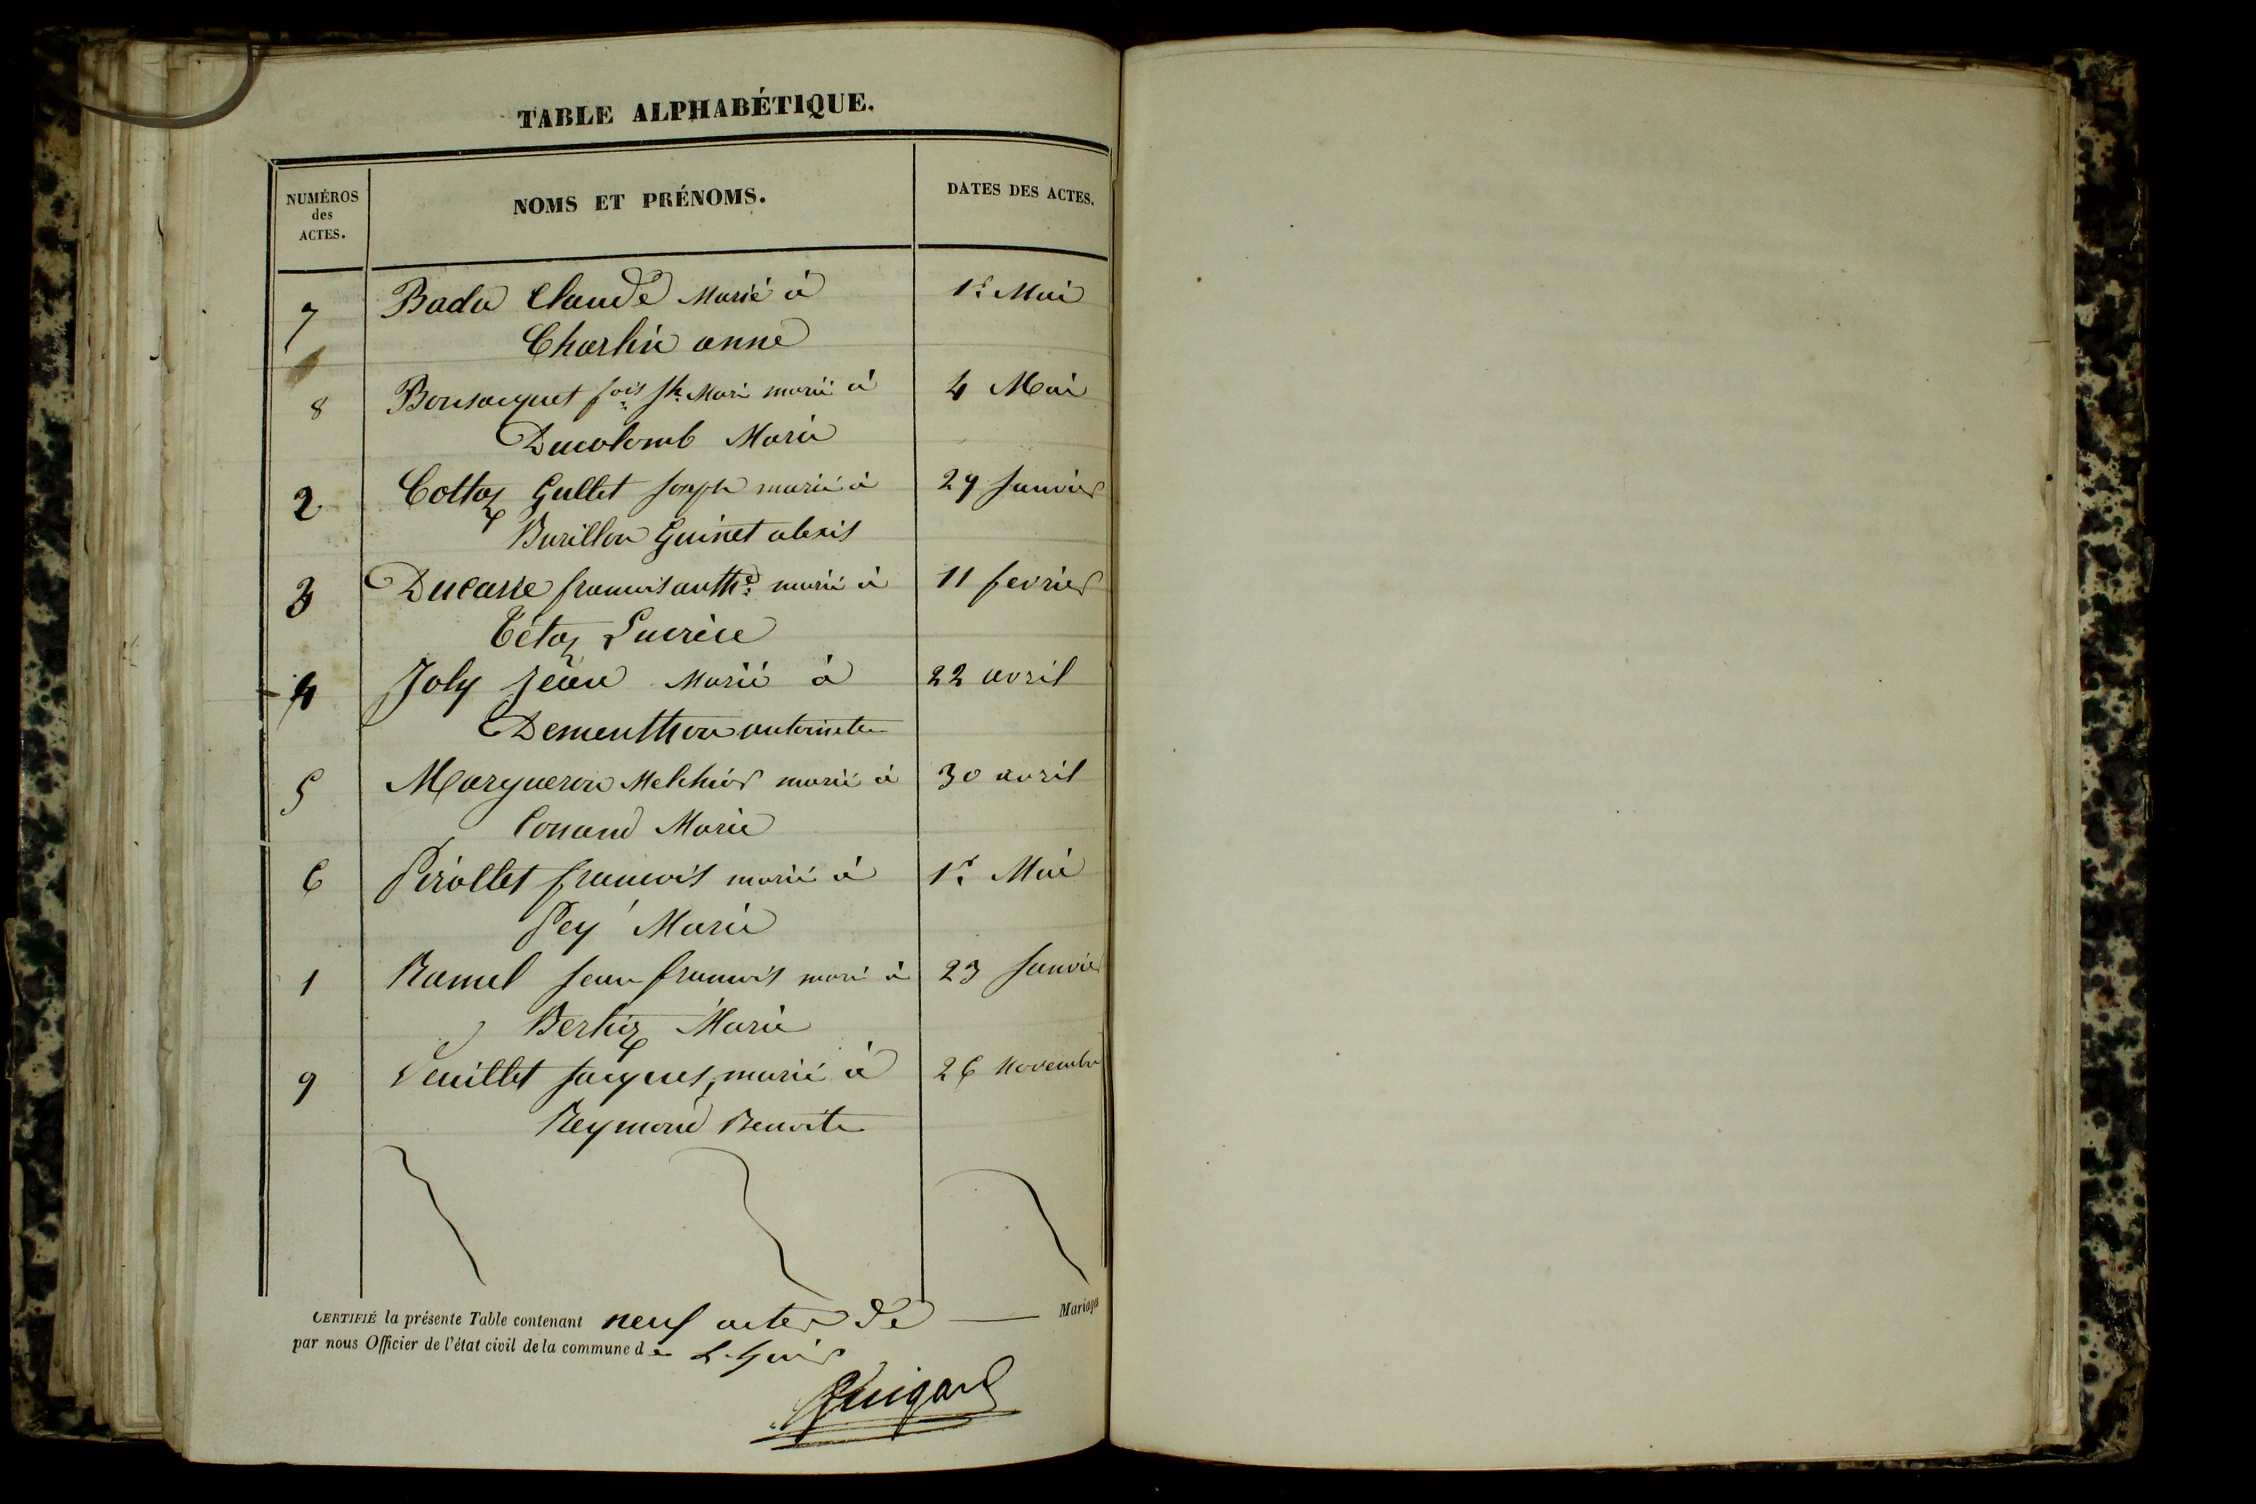 TABLE ALPHABÉTIQUE.
NUMÉROS des ACTES.
NOMS ET PRÉNOMS.
DATES DES ACTES.
7 Bada Claude Marié à 1er Mai
Charlin anne
8 Bousacquet fois Jh Marie marié à 4 Mai
Ducolomb Marie
2 Cottaz Gullet Joseph marié à 29 Janvier
Burillon Guinet alexis
3 Ducasse francois anthe marié à 11 fevrier
Tétaz Lucrèce
4 Joly Jean Marié à 22 avril
Dementhon antoinette
5 Margueron Melchior marié à 30 avril
Conand Marie
6 Pirollet francois marié à 1er Mai
Pey Marie
1 Ramel Jean francois marié à 23 Janvier
Berlioz Marie
9 Veuillet Jacques, marié à 26 Novembre
Reymond Benoite
CERTIFIÉ la présente Table contenant neuf actes de Mariage
par nous Officier de l'état civil de la commune de
Guigard